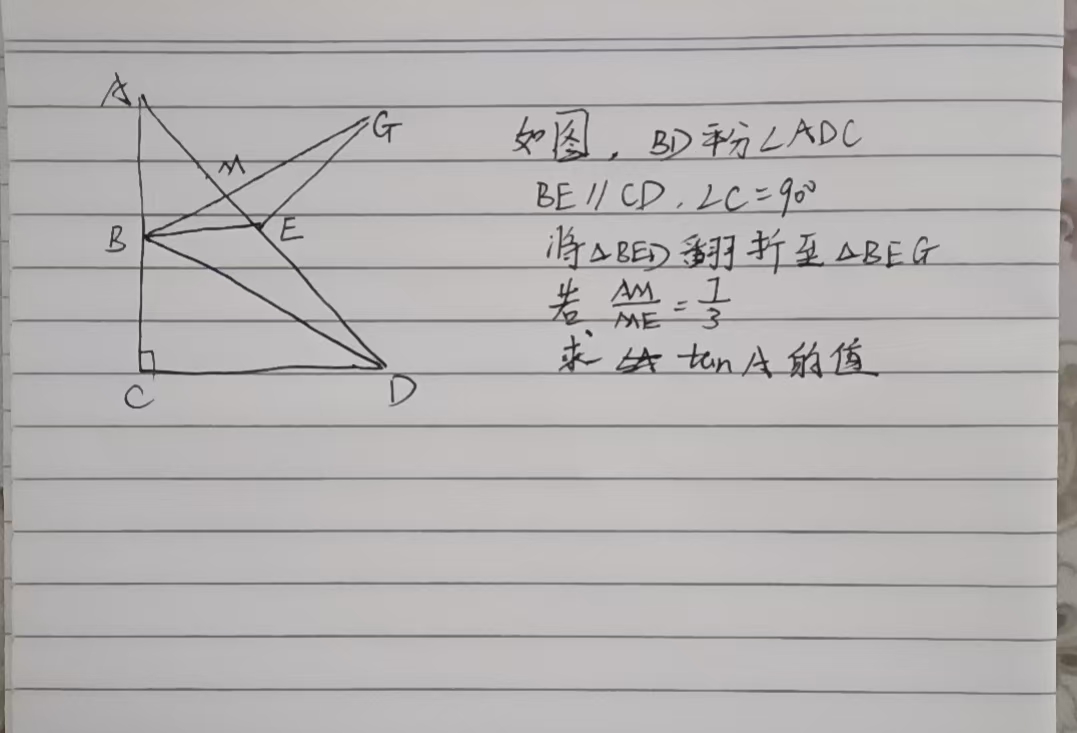 A
G
M
B
E
C
D
如图, BD平分∠ADC
BE∥CD, ∠C=90°
将△BED翻折至△BEG
若 AM/ME = 1/3
求 tanA的值